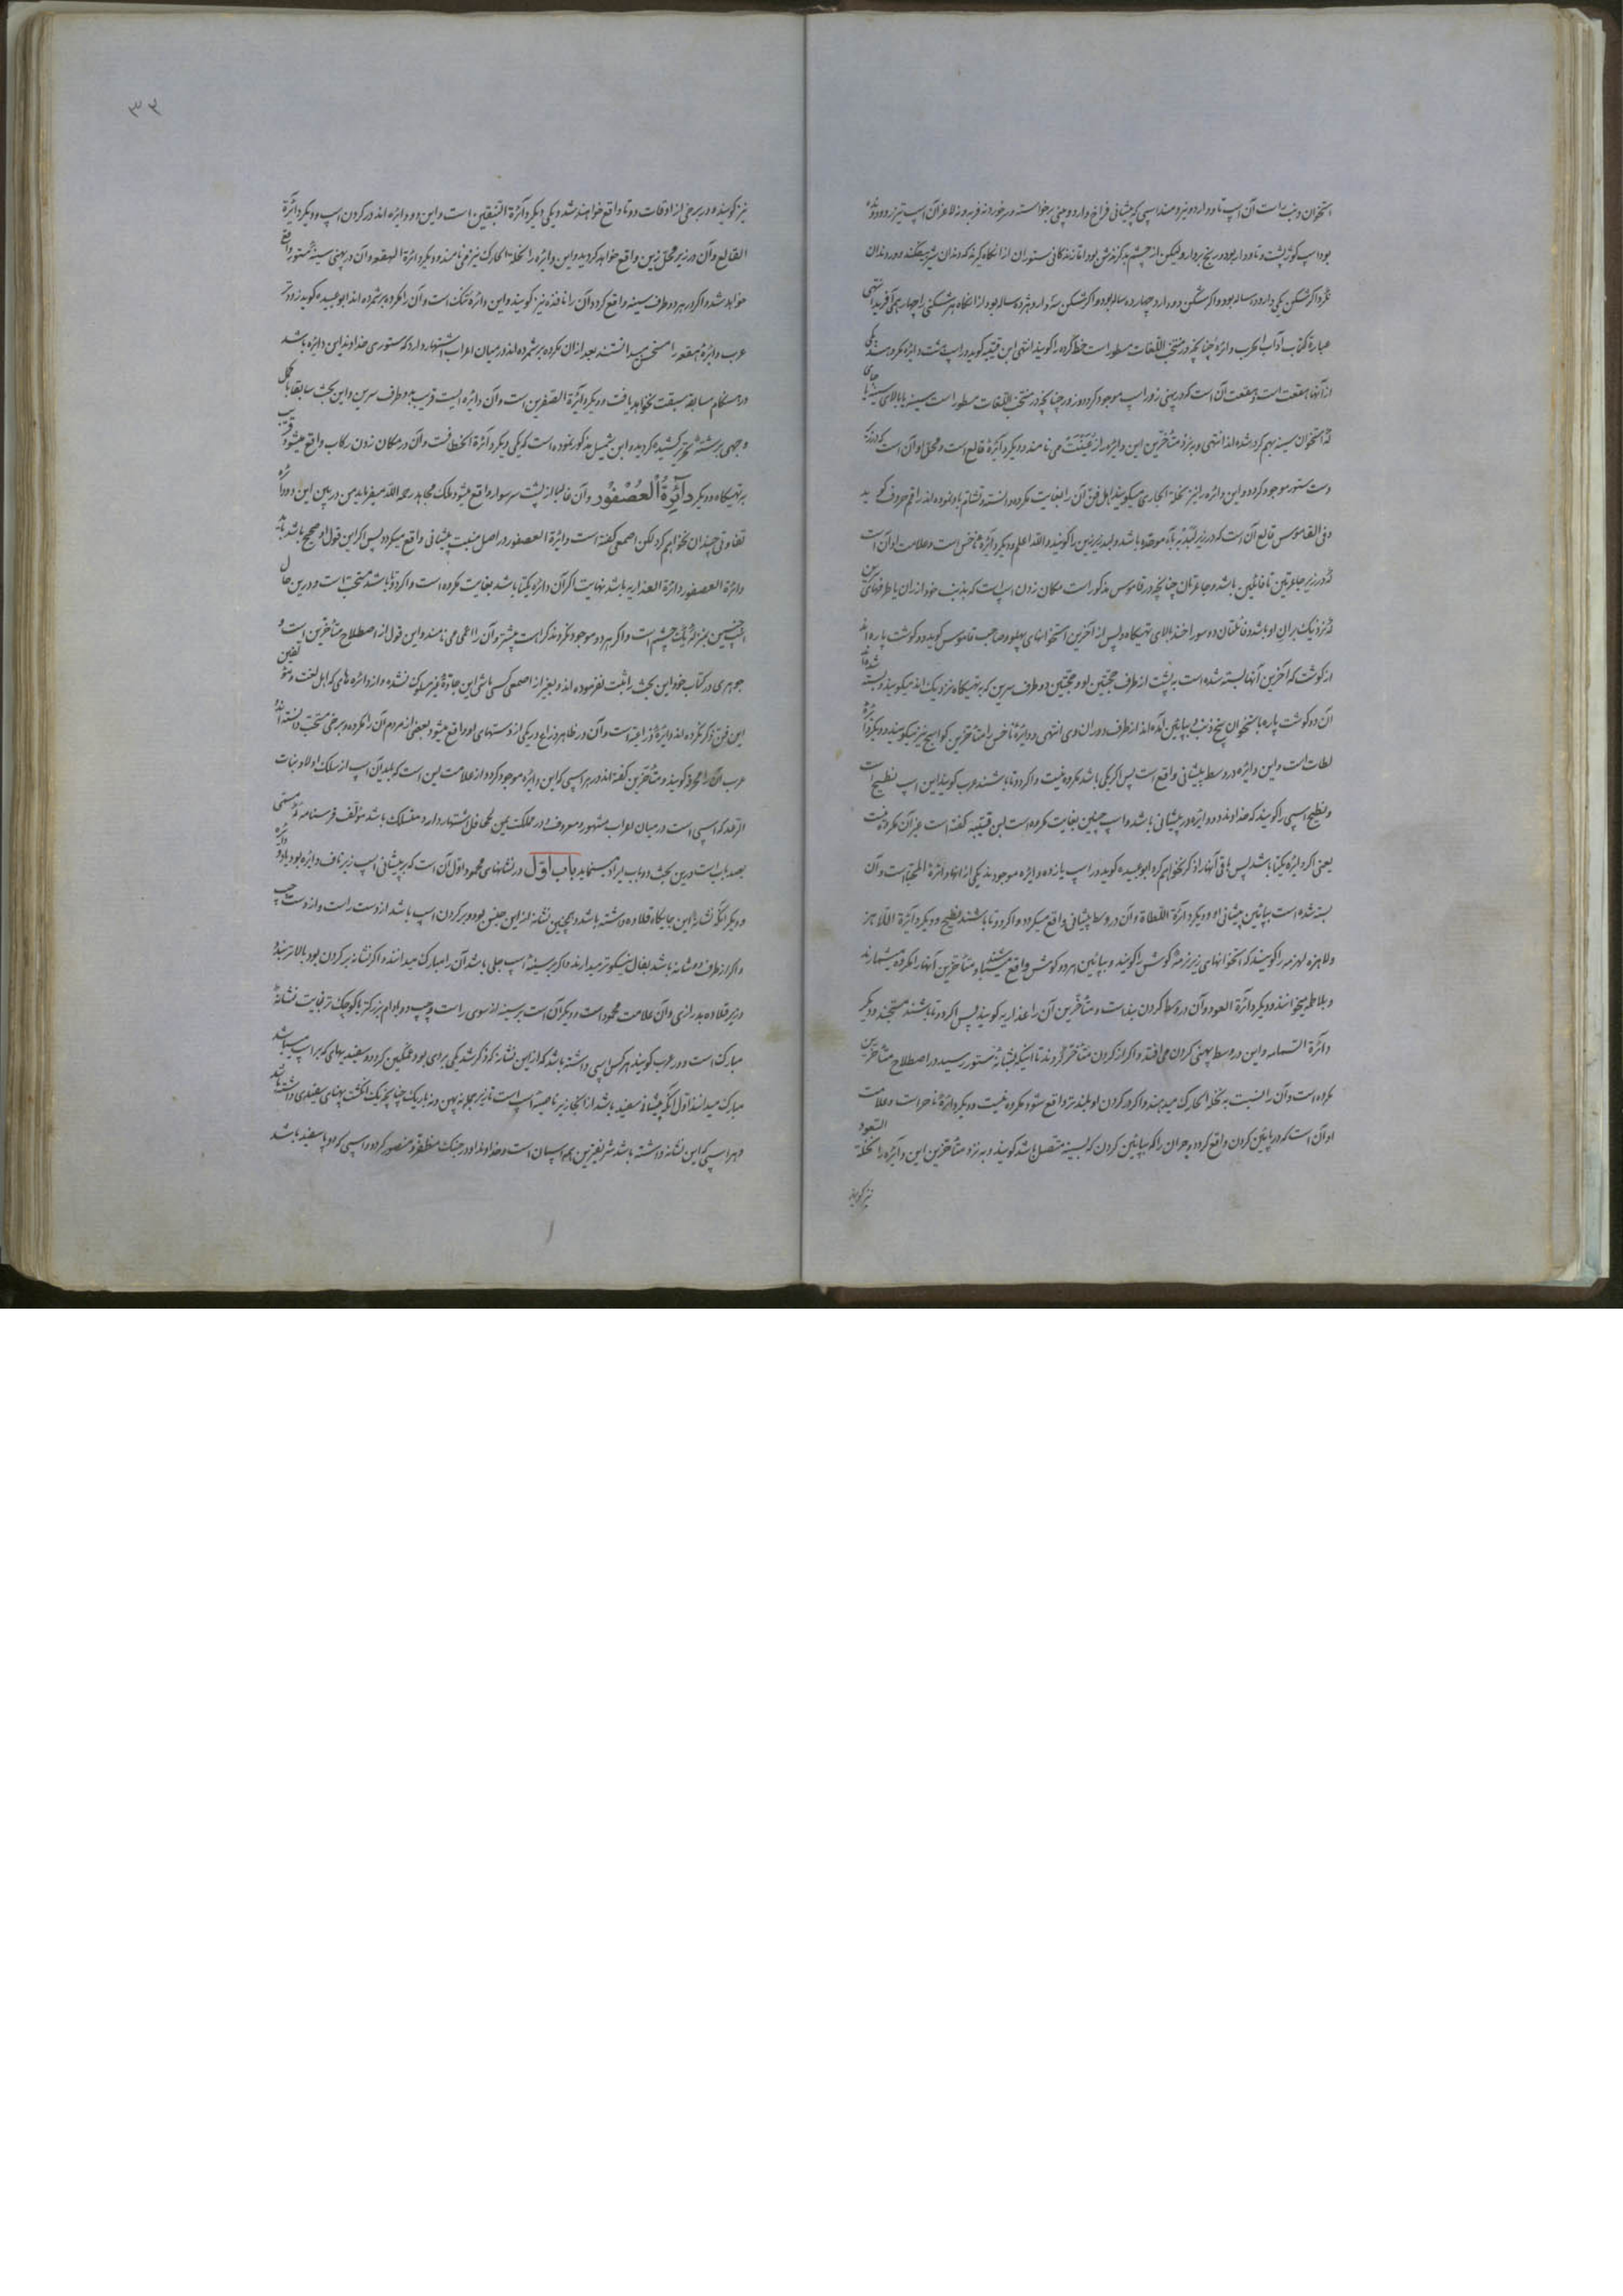 استخوان و نیت است آن اسپ تا و دارد و نیرومند اسپی که پیشانی فراخ دارد و چنی برخواسته و رخورد نه فربه و نه لاغر آن اسپ تیزرو و دونده
بود اسپ کوژپشت و تاودار بود و رنج بردار و لیکن از چشم بد گزندش بود اما زندگانی ستوران از آنگاه گیرند که دندان شیر بیفکند و در دندان
نگرد اگر شکن یکی دارد ده ساله بود و اگر شکن دو دارد چهارده ساله بود و اگر شکن سه دارد هژده ساله بود از آنگاه هر شکنی را چهار
عبارة کتاب آداب الحرب و دائره چنانچه در منتخب اللغات مسطور است خط گرد را گویند انتهی ابن قتیبه گوید در اسپ هشت دائره مکروهند یکی
از آنها هقعت است و هقعت آن است که در پهنی زور اسپ موجود گردد و زور چنانچه در منتخب اللغات مسطور است سینه یا بالای سینه یا جای
که استخوان سینه بهم گرد شده اند انتهی و بنزد متأخرین این دائره را می نامند و دیگر دائرة قالع است و محل او آن است که در زیر
دست ستور موجود گردد و این دائره را نیز نخلة الجاری میگویند اهل فن آن را بغایت مکروه دانسته و تشاؤم باو نموده اند راقم حروف گوید
و فی القاموس قالع آن است که در زیر لبد به باء موحده باشد و لبد زیر زین را گویند و الله اعلم و دیگر دائرة ناخس است و علامت او آن است
که در زیر جاعرتین تا فائلین باشد و جاعرتان چنانچه در قاموس مذکور است مکان زدن اسپ است که بذنب خود از ران یا طرفهای سرین
که نزدیک ران او باشد و فائلتان دو سوراخند بالای تهیگاه و پس از آخرین استخوانهای پهلو و صاحب قاموس گوید دو گوشت پاره اند
از گوشت که آخرین آنها بسته شده است به پشت از طرف حجبتین او و حجبتین دو طرف سرین که بر تهیگاه نزدیک اند میگویند و بسته شده
آن دو گوشت پاره باستخوان بیخ ذنب و بپایین آمده اند از طرف دو ران وی انتهی و دائرة ناخس را متأخرین نیز میگویند و دیگر دائرة
لطات است و این دائره در وسط پیشانی واقع است پس اگر یکی باشد مکروه نیست و اگر دو تا باشند عرب گویند این اسپ نطیح است
و نطیح اسپی را گویند که خداوند دو دائره در پیشانی باشد و اسپ چنین بغایت مکروه است ابن قتیبه گفته است غیر آن مکروه نیست
یعنی اگر دائره یکتا باشد پس باقی آنها را ذکر نخواهم کرد ابو عبیده گوید در اسپ یازده دائره موجودند یکی از آنها دائرة المحیا است و آن
بسته شده است بپائین پیشانی او و دیگر دائرة اللطاة و آن در وسط پیشانی واقع میگردد و اگر دو تا باشند نطیح و دیگر دائرة اللاهز
و لاهزه لهزمه را گویند که استخوانهای زیر نرمه گوش را گویند و بپائین هر دو گوش واقع میشود و متأخرین آنها را مکروه میشمارند
و بلاطمه میخوانند و دیگر دائرة العمود و آن در وسط گردن بند است و متأخرین آن را عذاریه گویند پس اگر دو تا باشند مستحبند و دیگر
دائرة السمامه و این در وسط پهنی گردن می افتد و اگر از گردن متأخر گردند تا اینکه بشانه ستور رسید در اصطلاح متأخرین
مکروه است و آن را نسبت به نخلة الحارک میدهند و اگر در گردن او بلندتر واقع شود مکروه نیست و دیگر دائرة ناحر است و علامت
او آن است که در پایین گردن واقع گردد و جران را که بپایین گردن که بسینه متصل باشد گویند و به نزد متأخرین این دائره را نخلة العود
نیز گویند
٣٢
نیز گویند و در برخی از اوقات دو تا واقع خواهند شد و یکی دیگر دائرة البنیقین است و این دو دائره اند در گردن اسپ و دیگر دائرة
القالع و آن در زیر محل زین واقع خواهد گردید و این دائره را نخلة الحارک نیز می نامند و دیگر دائرة الهقعه و آن در پهنی سینه ستور واقع
خواهد شد و اگر در هر دو طرف سینه واقع گردد آن را نافذه نیز گویند و این دائره تنگ است و آن را مکروه برشمرده اند ابو عبیده گوید زودتر
عرب دائرة هقعه را مستحسن میدانستند بعد از آن مکروه برشمرده اند و در میان اعراب اشتهار دارد که ستوری خداوند این دائره باشد
در هنگام مسابقه سبقت نخواهد یافت و دیگر دائرة الصقرین است و آن دائره ایست قریب بدو طرف سرین و این بحث سابقا بکمل
وجهی برشته تحریر کشیده گردید و ابن شمیل مذکور نموده است که یکی دیگر دائرة الخطاف است و آن در مکان زدن رکاب واقع میشود قریب
به تهیگاه و دیگر دَآئِرَةُ الْعُصْفُور و آن غالبا از پشت سر سوار واقع میشود ملک مجاهد رحمه الله میفرماید من در بین این دو دائره
تفاوتی چندان نخواهم کرد لکن اصمعی گفته است دائرة العصفور در اصل منبت پیشانی واقع میگردد پس اگر این قول او صحیح باشد باید
دائرة العصفور دائرة العذاریه باشد نهایت اگر آن دائره یکتا باشد بغایت مکروه است و اگر دو تا باشد مستحب است و درین حال
اسپ چنین بمنزلۀ یک چشم است و اگر هر دو موجود نگردند کراهت بیشتر و آن را اعمی می نامند و این قول از اصطلاح متأخرین است و
جوهری در کتاب خود این بحث را ثبت نفرموده اند و بغیر از اصمعی کسی باش این جاده نشده و از دائره های که اهل لغت و متوفقین
این فن ذکر نکرده اند دائرة ذراعیه است و آن در ظاهر ذراع در یکی از دستهای او واقع میشود بعضی از مردم آن را مکروه و برخی مستحب دانسته اند
عرب آن را گویند و متأخرین گفته اند در هر اسپی که این دائره موجود گردد از علامت این است که آن اسپ از سلک اولاد بنات
است در میان اعراب مشهور و معروف و در مملکت یمن اشتهار دارد و منسلک باشد مؤلف فرسنامه که مسمی
بصد باب است درین بحث دو باب ایراد مینماید باب اوّل در نشانهای محمود اول آن است که بر پیشانی اسپ زیر ناف دائره بود
و دیگر آنکه نشانه این جایگاه قلاده داشته باشد و همچنین نشانه از این جنس بود و بر گردن اسپ باشد از دست راست و از دست چپ
و اگر از طرف دو شانه باشد بفال نیکوتر میدارند و اگر بر سینه اسپ جلی باشد آن را مبارک میدانند و اگر نشانه بر گردن بود بالاتر
و زیر قلاده بدرازی و آن علامت محمود است و دیگر آن است بر سینه از سوی راست و چپ دو بادام بزرگتر یا کوچک تر بغایت نشانۀ
مبارک است و در عرب گویند هر کس اسپی داشته باشد که از این نشانه که ذکر شد یکی بر وی بود غمگین نگردد و سفیدیهای که بر اسپ میباشد
مبارک میدانند اول آنکه پیشانی سفید باشد از آنجا زیر ناصیه اسپ است تا زیر نه پهن و نه باریک چنانچه یک انگشت پهنای سفیدی داشته باشد
و هر اسپی که این نشانه داشته باشد شریفترین همه اسپان است و خداوند او در جنگ مظفر و منصور گردد و اسپی که دو پا سفید باشد